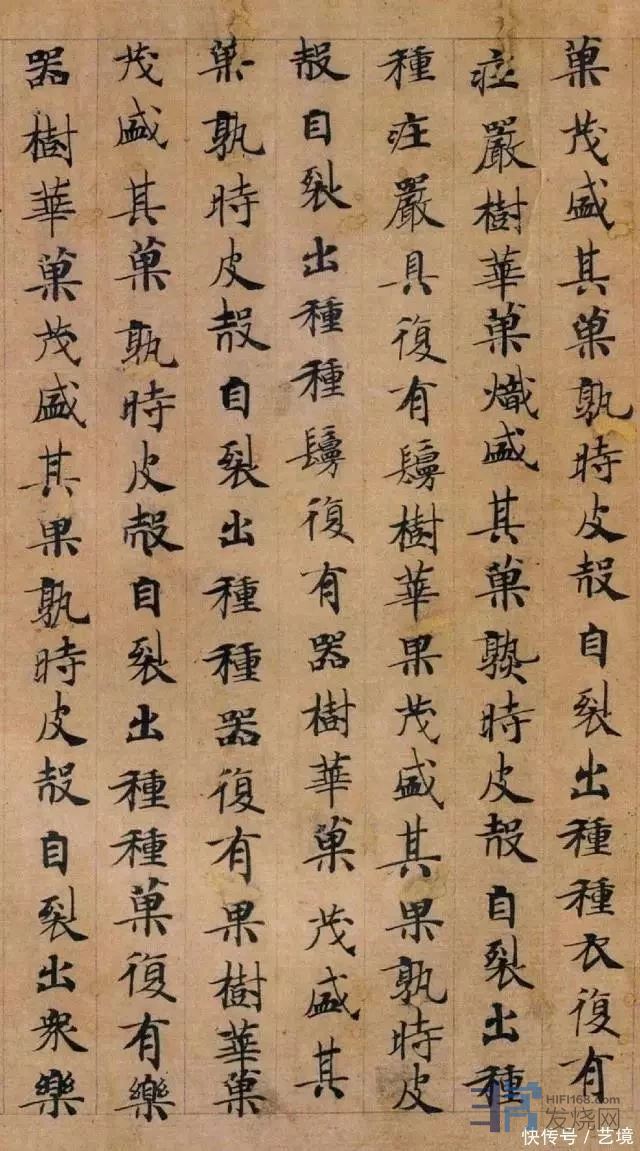 菓茂盛其菓孰時皮殻自裂出種種衣復有
庄嚴樹華菓熾盛其菓熟時皮殻自裂出種
種庄嚴具復有鬘樹華果茂盛其果孰時皮
殻自裂出種種鬘復有器樹華菓茂盛其
菓孰時皮殻自裂出種種器復有果樹華菓
茂盛其菓孰時皮殻自裂出種種菓復有樂
器樹華菓茂盛其果孰時皮殻自裂出衆樂
HIFI168.com
发烧网
快传号／艺境